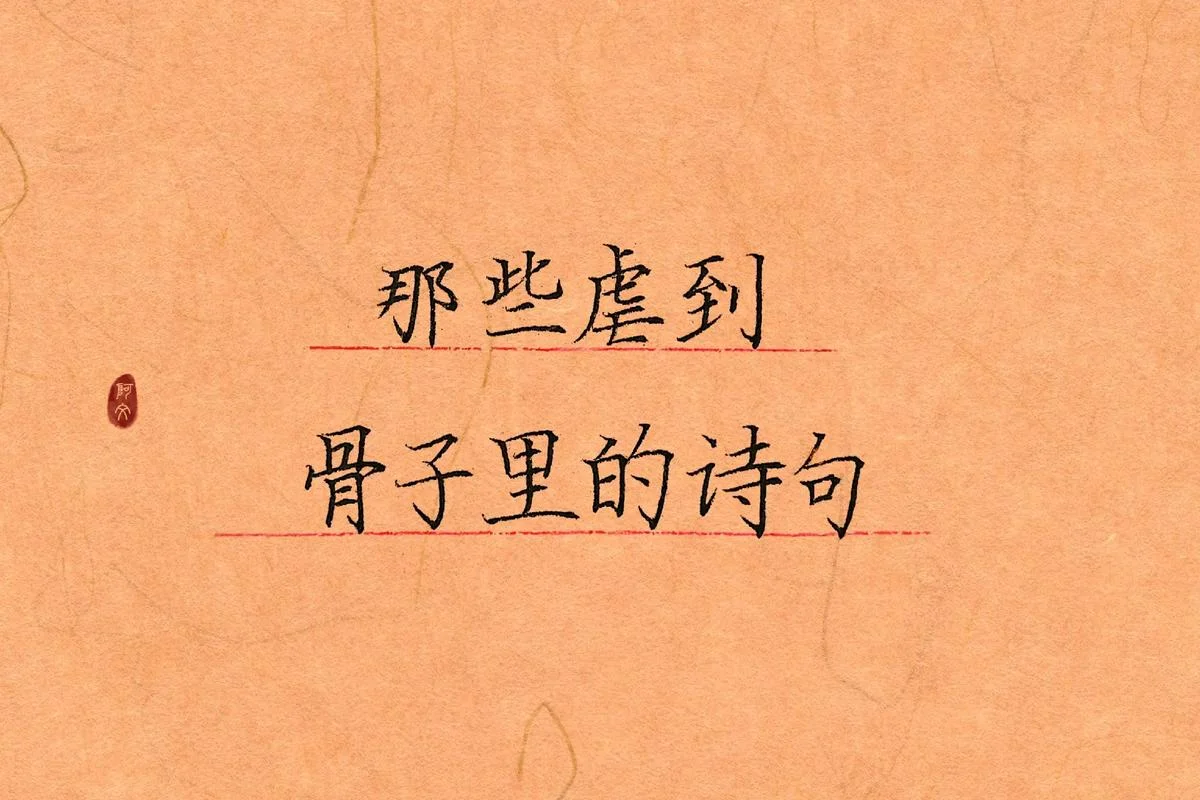 那些虐到
骨子里的诗句
阿文